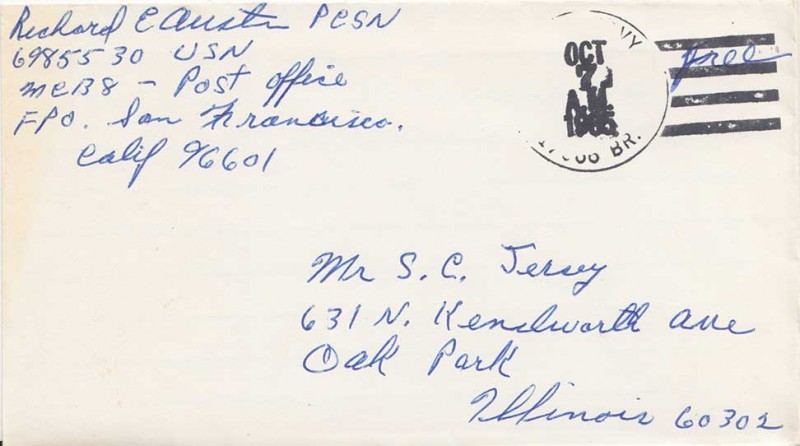 Richard E Austin PCSN
6985530 USN
MCB8 - Post office
FPO. San Francisco.
Calif 96601
VY
OCT
7
A.M.
BR.
free
Mr S. C. Jersey
631 N. Kenilworth Ave
Oak Park
Illinois 60302